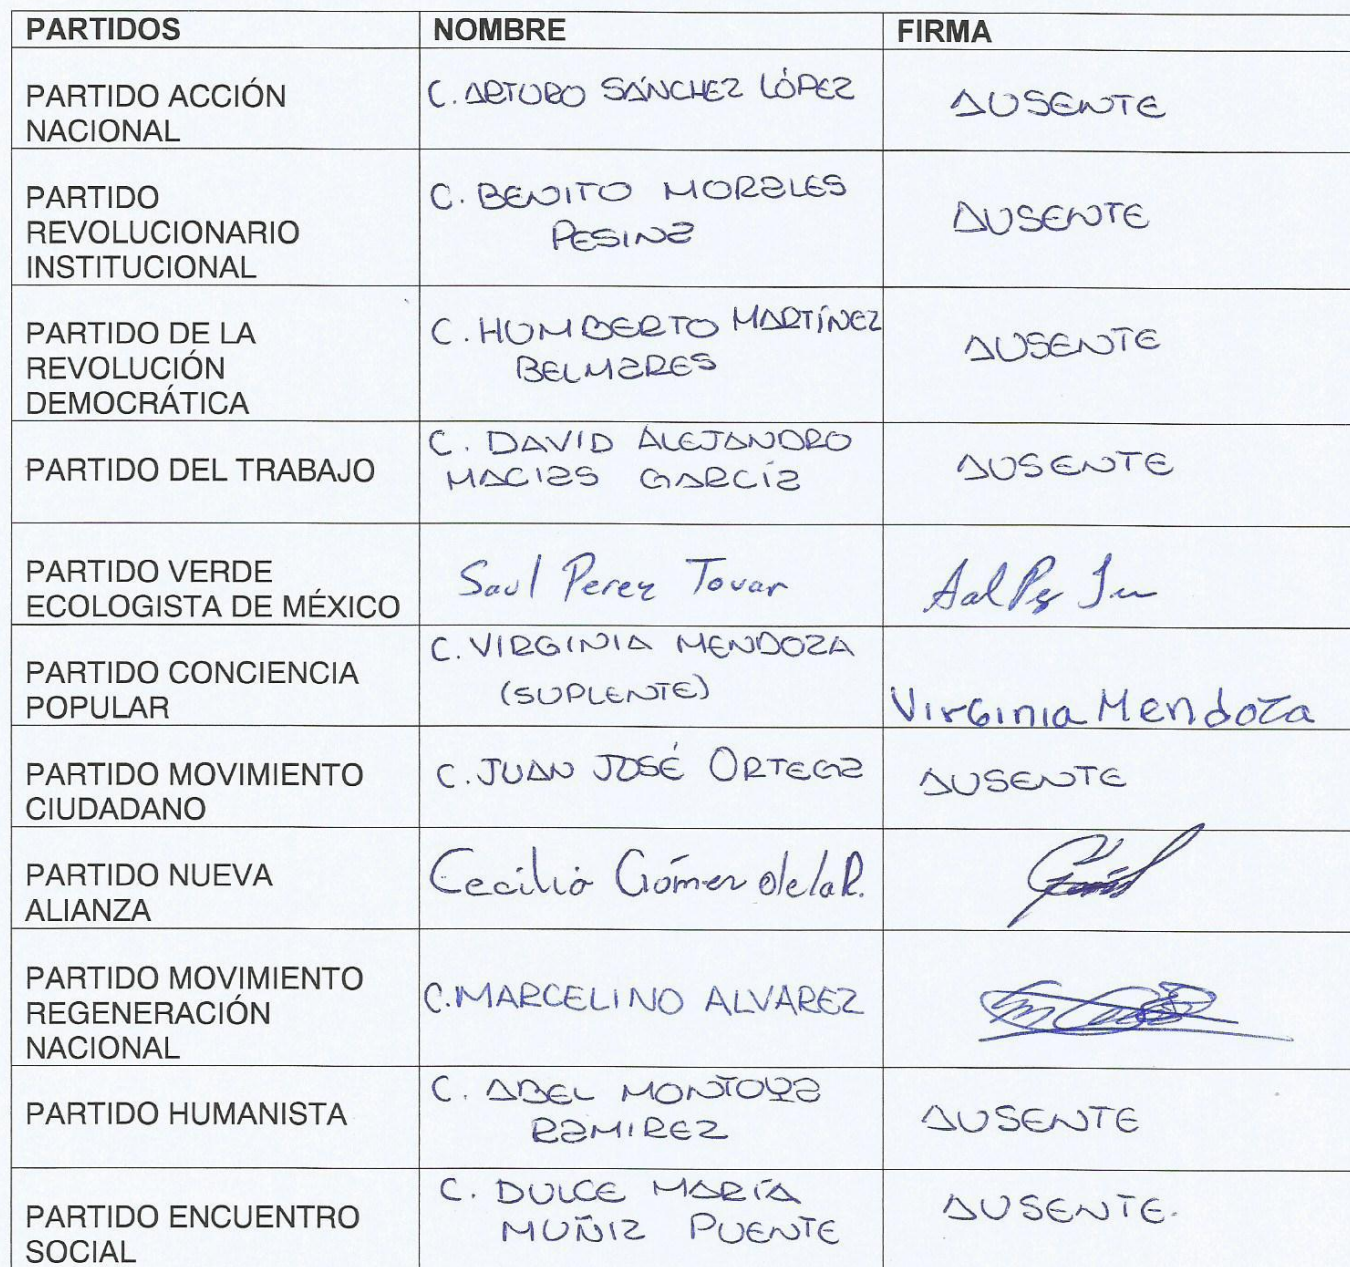 PARTIDOS NOMBRE FIRMA
PARTIDO ACCIÓN
NACIONAL
C. ARTURO SÁNCHEZ LÓPEZ
AUSENTE
PARTIDO
REVOLUCIONARIO
INSTITUCIONAL
C. BENITO MORALES
PESINA
AUSENTE
PARTIDO DE LA
REVOLUCIÓN
DEMOCRÁTICA
C. HUMBERTO MARTÍNEZ
BELMARES
AUSENTE
PARTIDO DEL TRABAJO
C. DAVID ALEJANDRO
MACIAS GARCÍA
AUSENTE
PARTIDO VERDE
ECOLOGISTA DE MÉXICO
Saul Perez Tovar
PARTIDO CONCIENCIA
POPULAR
C. VIRGINIA MENDOZA
(SUPLENTE)
Virginia Mendoza
PARTIDO MOVIMIENTO
CIUDADANO
C. JUAN JOSÉ ORTEGA
AUSENTE
PARTIDO NUEVA
ALIANZA
Cecilia Gómez de la R.
PARTIDO MOVIMIENTO
REGENERACIÓN
NACIONAL
C. MARCELINO ALVAREZ
PARTIDO HUMANISTA
C. ABEL MONTOYA
RAMIREZ
AUSENTE
PARTIDO ENCUENTRO
SOCIAL
C. DULCE MARÍA
MUÑIZ PUENTE
AUSENTE.